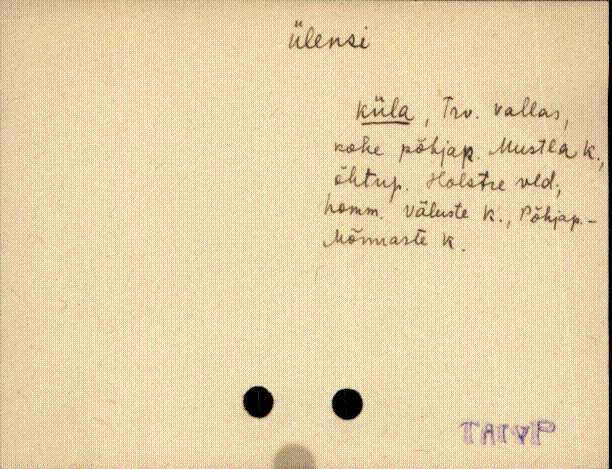 ülensi
küla, Trv. vallas,
kohe põhjap. Mustla k.,
õhtup. Holstre vld,
homm. Väluste k., Põhjap.-
Mõnnaste k.